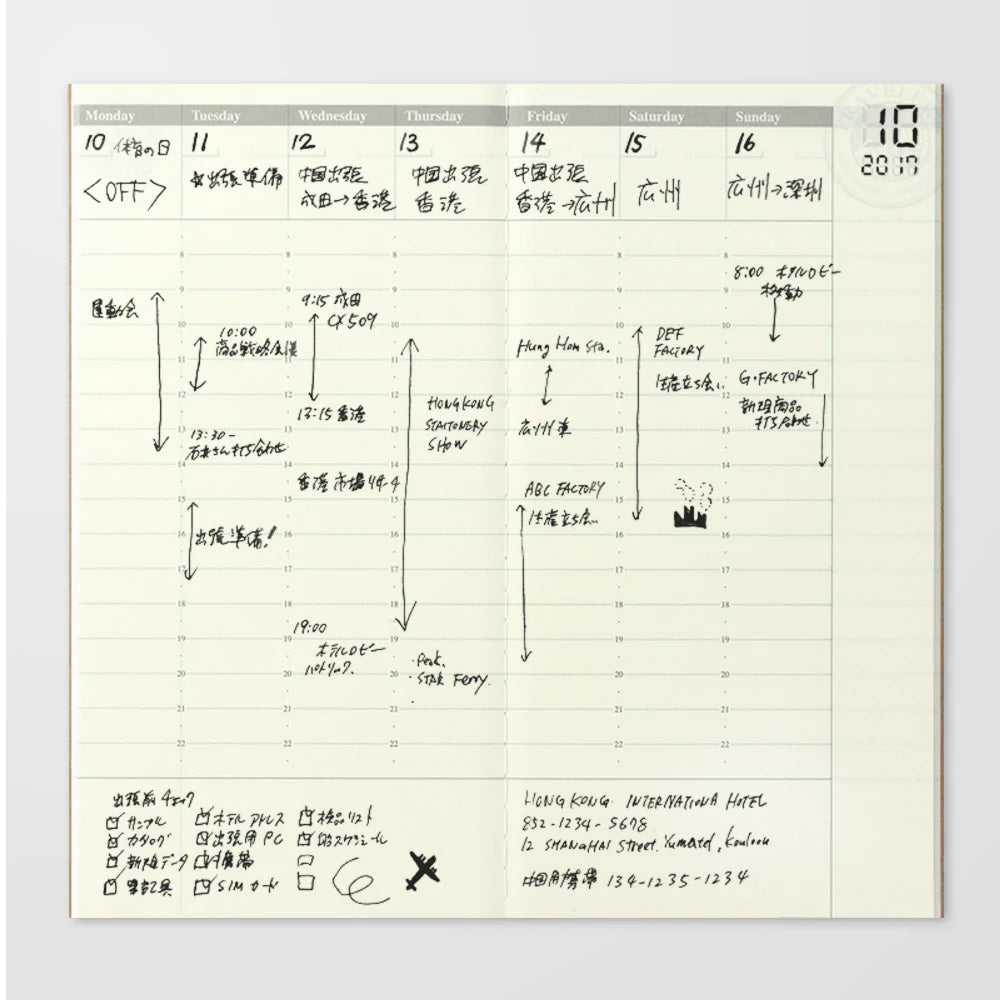 Monday
Tuesday
Wednesday
Thursday
Friday
Saturday
Sunday
10
2017
10 体育の日
<OFF>
運動会
11
出張準備
10:00
商品戦略会議
13:30-
石井さん打ち合わせ
出張準備!
12
中国出張
成田→香港
9:15 成田
CX509
13:15 香港
香港市場リサーチ
19:00
ホテルロビー
パトリック.
13
中国出張
香港
HONG KONG
STAITONERY
SHOW
・Peak.
・STAR Ferry.
14
中国出張
香港→広州
Hung Hom Sta.
広州東
ABC FACTORY
生産立ち会い
15
広州
DEF
FACTORY
生産立ち会い
16
広州→深圳
8:00 ホテルロビー
移動
G・FACTORY
新規商品
打ち合わせ
8
9
10
11
12
13
14
15
16
17
18
19
20
21
22
出張前チェック
サンプル
ホテルアドレス
検品リスト
カタログ
出張用PC
スケジュール
新規データ
携帯
筆記具
SIMカード
HONG KONG INTERNATIONA HOTEL
852-1234-5678
12 SHANGHAI Street. Yumatei, Kouloon
中国用携帯 134-1235-1234